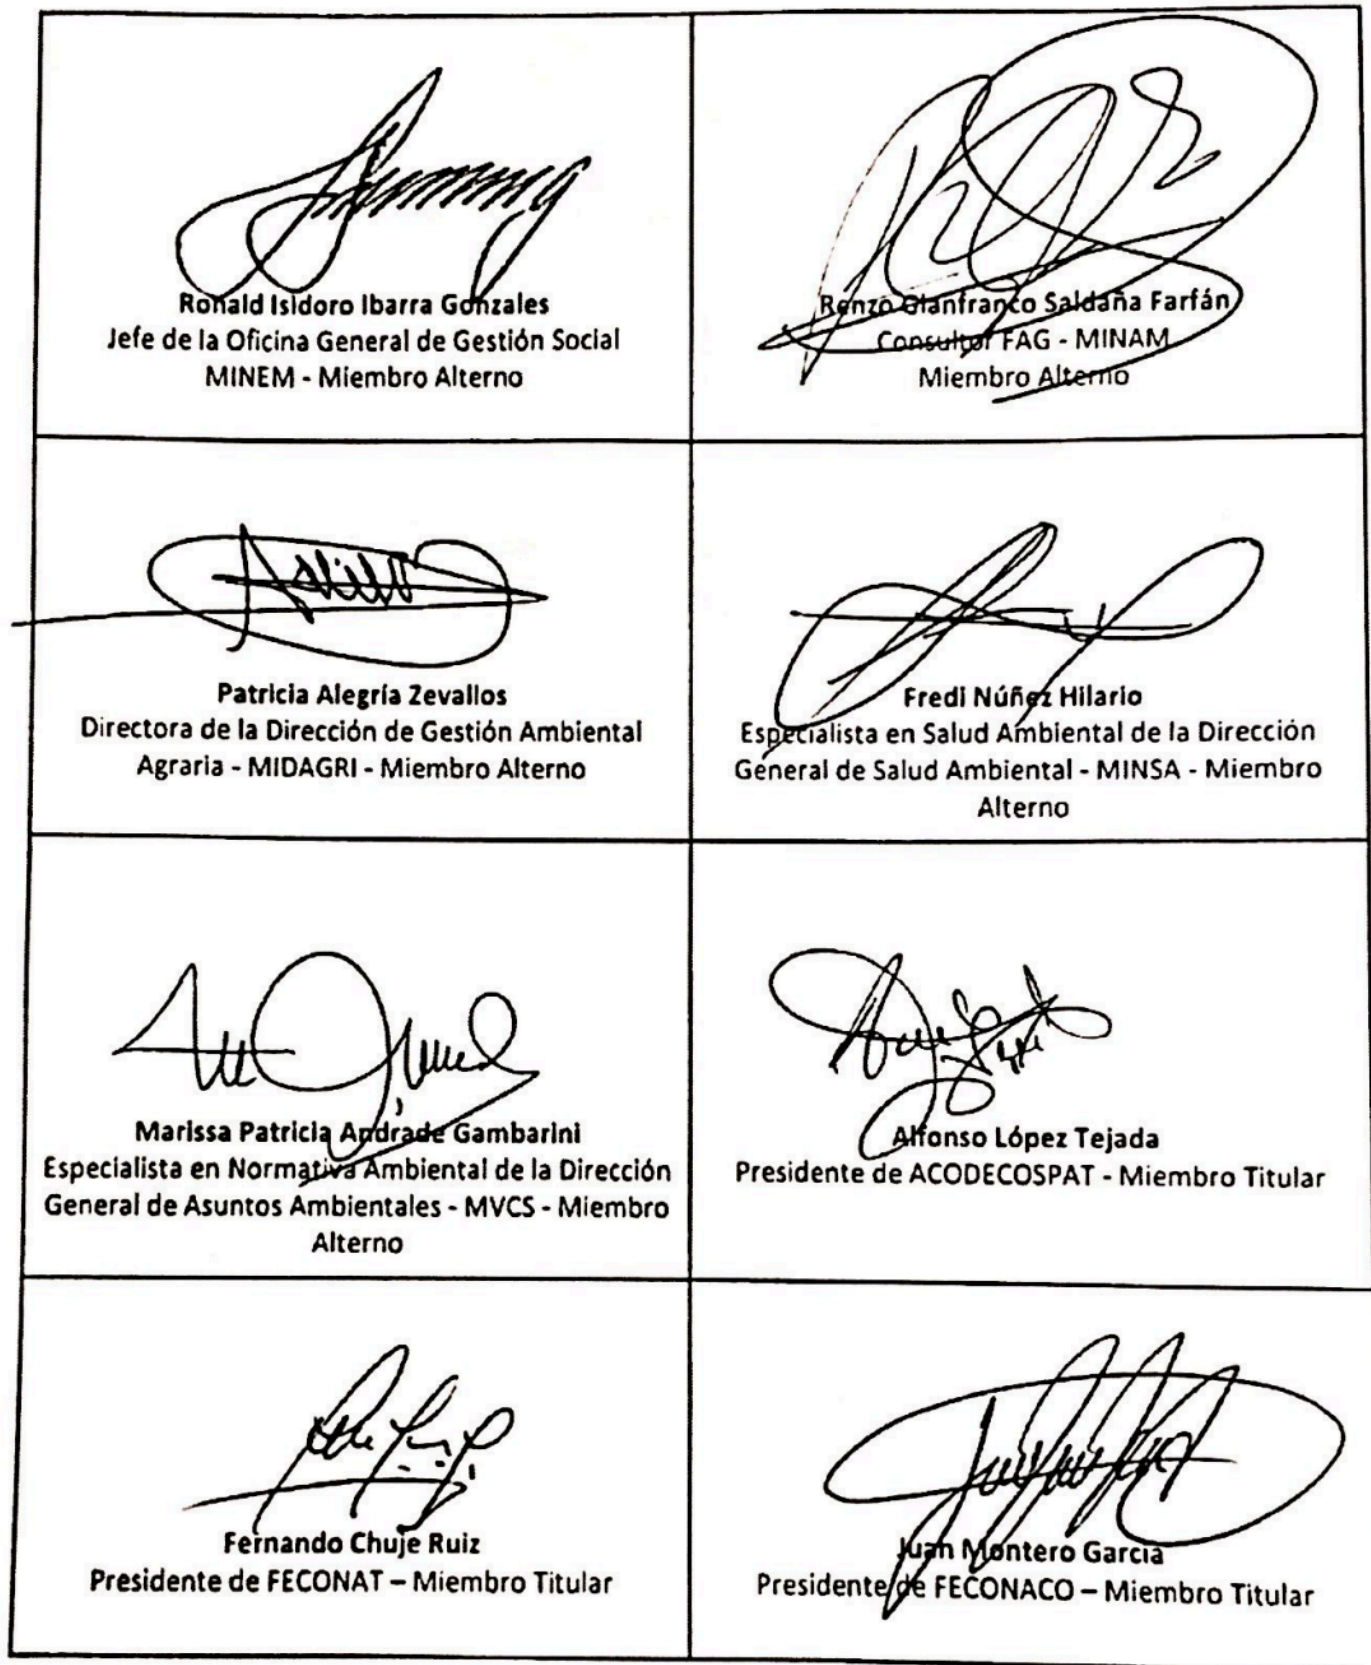 Ronald Isidoro Ibarra Gonzales
Jefe de la Oficina General de Gestión Social
MINEM - Miembro Alterno
Renzo Gianfranco Saldaña Farfán
Consultor FAG - MINAM
Miembro Alterno
Patricia Alegría Zevallos
Directora de la Dirección de Gestión Ambiental
Agraria - MIDAGRI - Miembro Alterno
Fredi Núñez Hilario
Especialista en Salud Ambiental de la Dirección
General de Salud Ambiental - MINSA - Miembro
Alterno
Marissa Patricia Andrade Gambarini
Especialista en Normativa Ambiental de la Dirección
General de Asuntos Ambientales - MVCS - Miembro
Alterno
Alfonso López Tejada
Presidente de ACODECOSPAT - Miembro Titular
Fernando Chuje Ruiz
Presidente de FECONAT – Miembro Titular
Juan Montero Garcia
Presidente de FECONACO – Miembro Titular